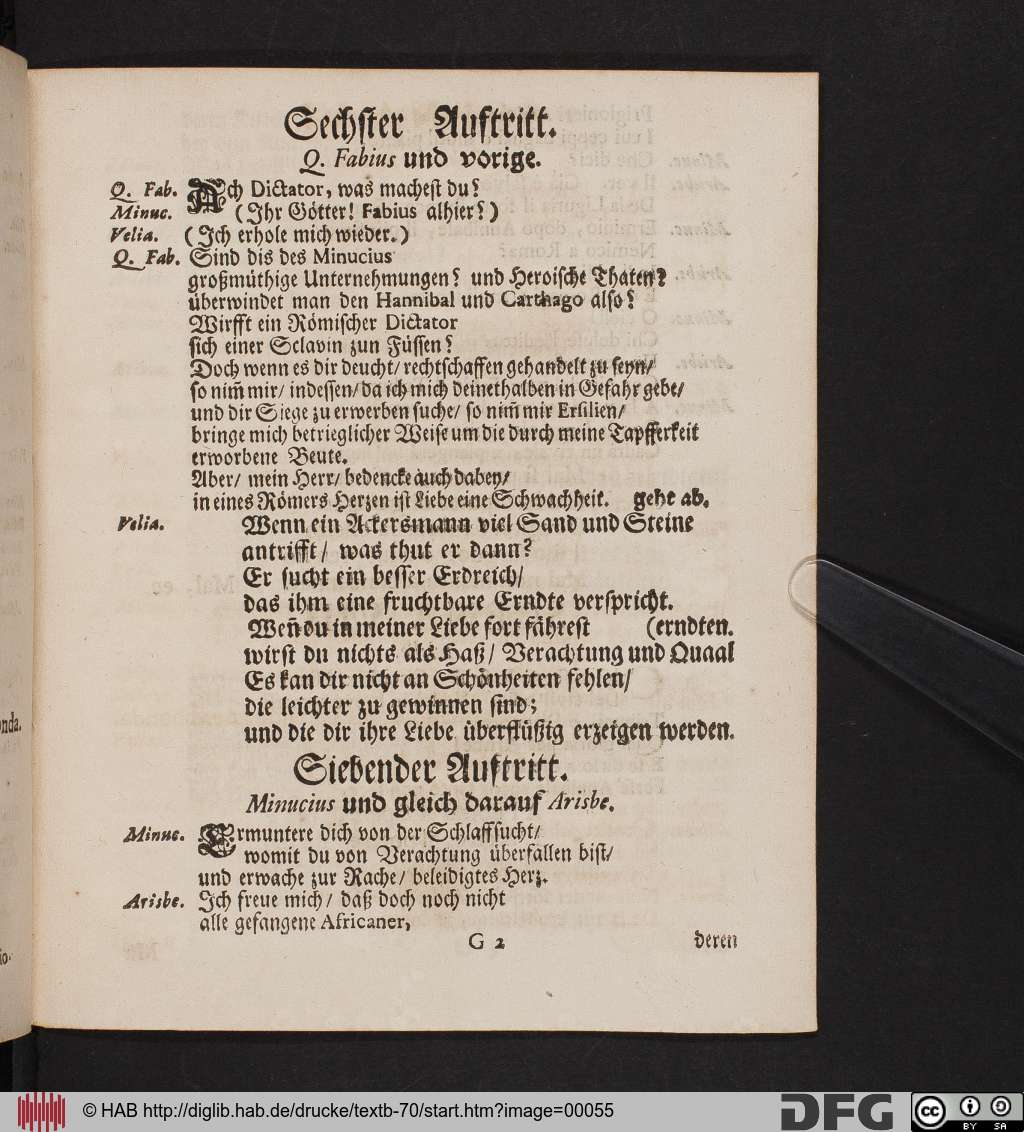 Sechster Auftritt.
Q. Fabius und vorige.
Q. Fab. Ach Dictator, was machest du?
Minuc. (Ihr Götter! Fabius alhier?)
Velia. (Ich erhole mich wieder.)
Q. Fab. Sind dis des Minucius
großmüthige Unternehmungen? und Heroische Thaten?
überwindet man den Hannibal und Carthago also?
Wirfft ein Römischer Dictator
sich einer Sclavin zun Füssen?
Doch wenn es dir deucht/ rechtschaffen gehandelt zu seyn/
so nim̃ mir/ indessen/ da ich mich deinethalben in Gefahr gebe/
und dir Siege zu erwerben suche/ so nim̃ mir Ersilien/
bringe mich betrieglicher Weise um die durch meine Tapfferkeit
erworbene Beute.
Aber/ mein Herr/ bedencke auch dabey/
in eines Römers Herzen ist Liebe eine Schwachheit. geht ab.
Velia. Wenn ein Ackersmann viel Sand und Steine
antrifft/ was thut er dann?
Er sucht ein besser Erdreich/
das ihm eine fruchtbare Erndte verspricht.
Weñ du in meiner Liebe fort fährest (erndten.
wirst du nichts als Haß/ Verachtung und Quaal
Es kan dir nicht an Schönheiten fehlen/
die leichter zu gewinnen sind;
und die dir ihre Liebe überflüßig erzeigen werden.
Siebender Auftritt.
Minucius und gleich darauf Arisbe.
Minuc. Ermuntere dich von der Schlaffsucht/
womit du von Verachtung überfallen bist/
und erwache zur Rache/ beleidigtes Herz.
Arisbe. Ich freue mich/ daß doch noch nicht
alle gefangene Africaner,
G 2 deren
© HAB http://diglib.hab.de/drucke/textb-70/start.htm?image=00055
DFG
cc BY SA